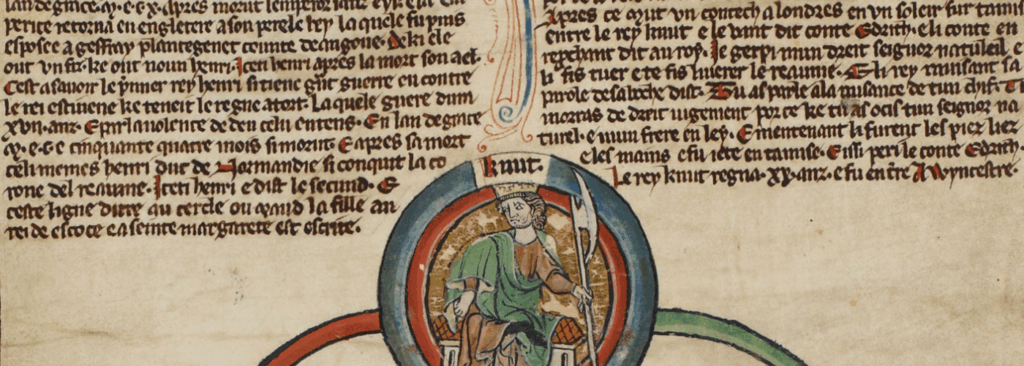 lan de grace. m. c. e x. apres morut lemperor
perice retorna en engletere a son pere le rey la quele fu puis
esposee a geffray plantegenet counte de angoue. De ki ele
out un fiz. ke out noun henri. Iceti henri apres la mort son ael.
Cest asavoir le pmer rey henri si tient gnt guerre en contre
le rei estiuene ke teneit le regne a tort. La quele guere dura
xvii. anz. E par la volente de deu celi entens. En lan de grace
m. e. c. e cinquante quatre mois si morut. E apres sa mort
celi memes henri duc de Normandie si conquit la co
rone del reaume. Iceti henri e dist le secund. E
ceste ligne dure au cercle ou maud la fille au
rei de escoce e a seinte margarete est escrite.
Apres ce avit un contech a londres en un soleir sur tamis
entre le rey knut e le vant dit conte Edrith. e li conte en
repchant dit au roy. Je gerpi mun dreit seignor naturel e
li fis tuer e te fis liverer le reaume. E li rey runisant sa
parole de sa boche dist. Tu as parle a la puisance de tun chif. Tu
morras de dreit jugement por ce ke tu as ocis tun seignor na
turel. e mun frere en ley. E meintenant li furent les piez liez
e les mains e fu jete en tamise. E issi peri le conte Edrith.
Le rey knut regna. xx. anz. e fu entre a Wyncestre.
knut.